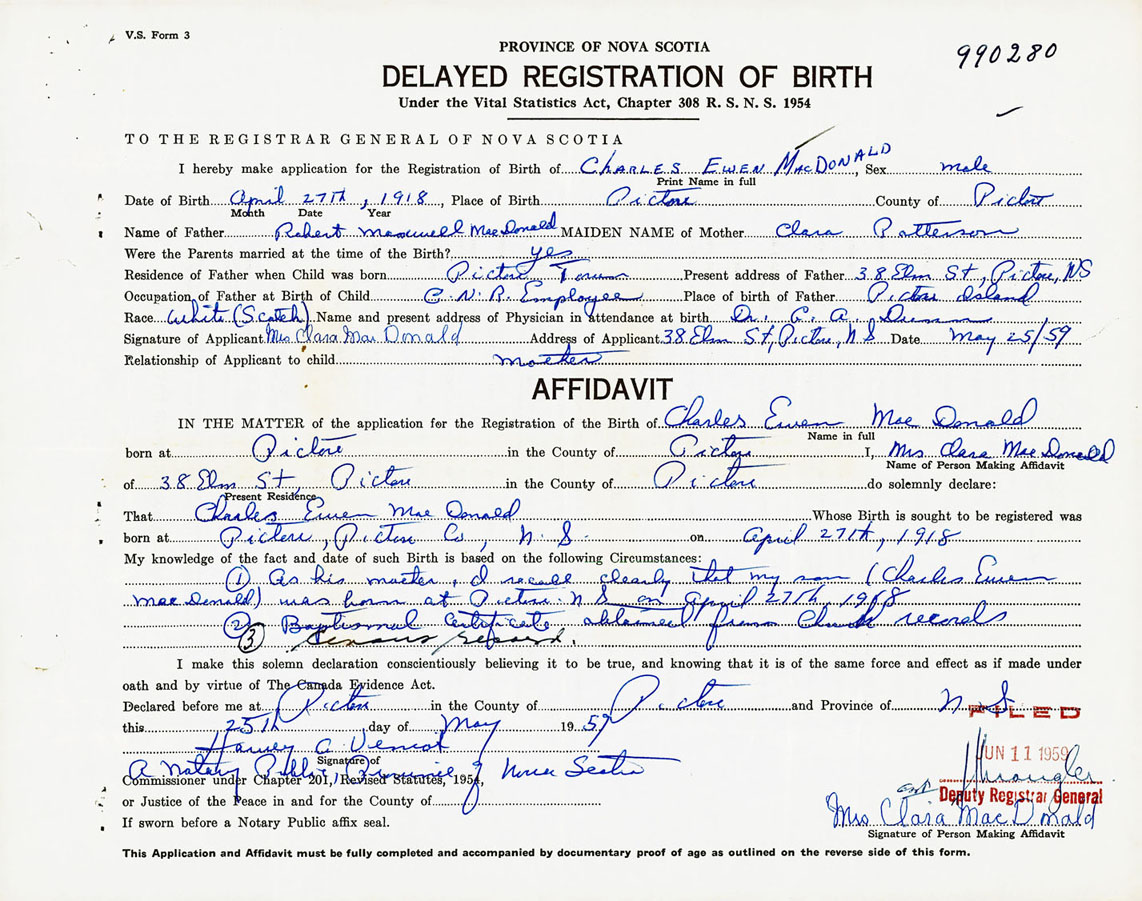 V.S. Form 3
PROVINCE OF NOVA SCOTIA
990280
DELAYED REGISTRATION OF BIRTH
Under the Vital Statistics Act, Chapter 308 R. S. N. S. 1954
TO THE REGISTRAR GENERAL OF NOVA SCOTIA
I hereby make application for the Registration of Birth of CHARLES EWEN MACDONALD, Sex male
Print Name in full
Date of Birth April 27th, 1918, Place of Birth Pictou County of Pictou
Month Date Year
Name of Father Robert Maxwell MacDonald MAIDEN NAME of Mother Clara Patterson
Were the Parents married at the time of the Birth? yes
Residence of Father when Child was born Pictou Town Present address of Father 38 Elm St, Pictou, NS
Occupation of Father at Birth of Child C. N. R. Employee Place of birth of Father Pictou Island
Race White (Scotch) Name and present address of Physician in attendance at birth Dr. C. A. Dunn
Signature of Applicant Mrs. Clara MacDonald Address of Applicant 38 Elm St, Pictou, N S Date May 25/59
Relationship of Applicant to child mother
AFFIDAVIT
IN THE MATTER of the application for the Registration of the Birth of Charles Ewen MacDonald
Name in full
born at Pictou in the County of Pictou I, Mrs Clara MacDonald
Name of Person Making Affidavit
of 38 Elm St, Pictou in the County of Pictou do solemnly declare:
Present Residence
That Charles Ewen MacDonald Whose Birth is sought to be registered was
born at Pictou, Pictou Co, N. S. on April 27th, 1918
My knowledge of the fact and date of such Birth is based on the following Circumstances:
(1) As his mother, I recall clearly that my son (Charles Ewen
MacDonald) was born at Pictou N S on April 27th, 1918
(2) Baptismal Certificate obtained from Church records
(3) Census record.
I make this solemn declaration conscientiously believing it to be true, and knowing that it is of the same force and effect as if made under
oath and by virtue of The Canada Evidence Act.
Declared before me at Pictou in the County of Pictou and Province of N. S
FILED
this 25th day of May 1959
JUN 11 1959
Harvey A Veniot
Signature of
A Notary Public Province of Nova Scotia
Commissioner under Chapter 201, Revised Statutes, 1954,
Deputy Registrar General
or Justice of the Peace in and for the County of
Mrs Clara MacDonald
If sworn before a Notary Public affix seal.
Signature of Person Making Affidavit
This Application and Affidavit must be fully completed and accompanied by documentary proof of age as outlined on the reverse side of this form.